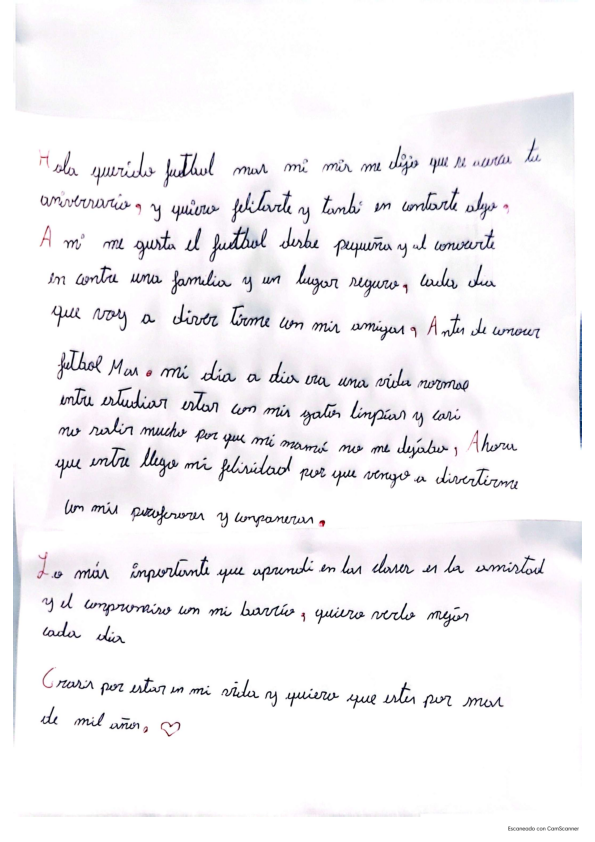 Hola querido futbol mas mi mis me dijo que se acerca tu
aniversario, y quiero felitarte y tambi en contarte algo,
A mi me gusta el fuetbol desbe pequeña y al conocerte
en contre una familia y un lugar seguro, cada dia
que voy a diver tirme con mis amigas, Antes de conocer
futbol Mas. mi dia a dia era una vida normal
entre estudiar estar con mis gatos limpias y casi
no salir mucho por que mi mamá no me dejaba, Ahora
que entre llego mi felisidad por que vengo a divertirme
con mis profesores y companeras.
Lo más inportante que aprendi en las clases es la amistad
y el conpromiso con mi barrio, quiero verlo mejor
cada dia
Crasis por estar en mi vida y quiero que estes por mas
de mil años. ♡
Escaneado con CamScanner